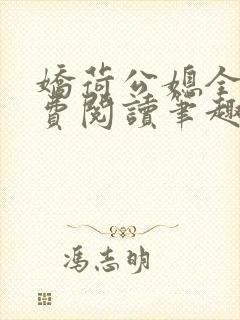 嬌荷公媳全
費閱讀筆趣
馮志明